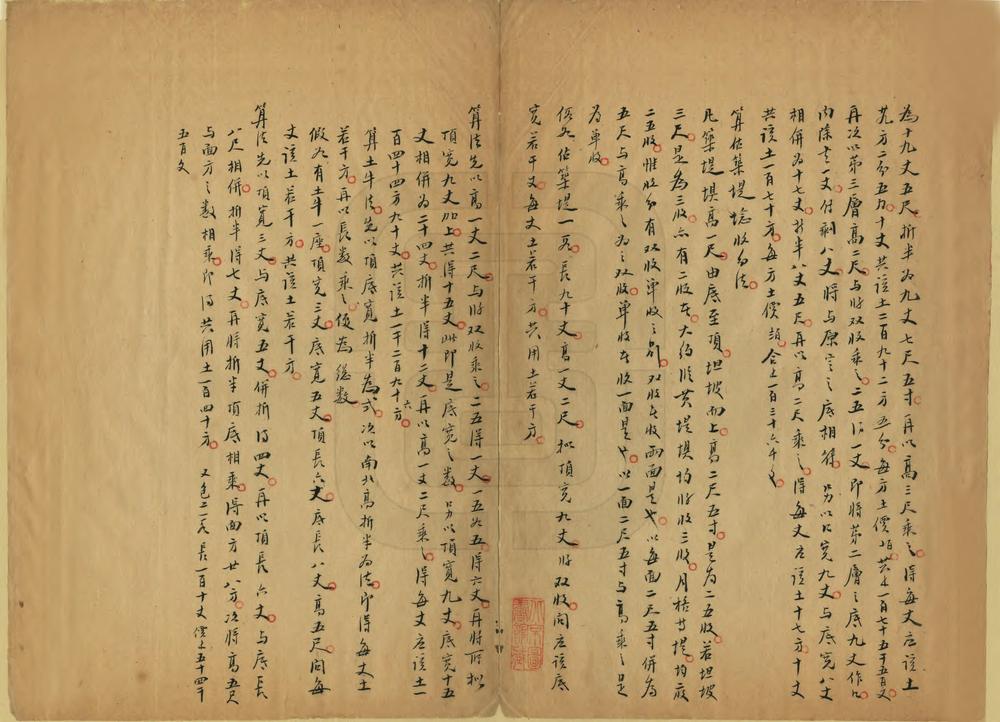 為十九丈五尺折半為九丈七尺五寸再以高三尺乘之得每丈应该土
廿九方二分五九十丈共该土二百九十二方五分每方土價
再次以第三層高二尺与收双收乘之二五得一丈即將第二層之底九丈作
内除去一丈付剩八丈將与原定之底相符另以口寬九丈与底寬八丈
相併為十七丈折半八丈五尺再以高二尺乘之得每丈应该土十七方十丈
共该土一百七十方每方土價 合之一百三十六千文
算估築堤 收分法
凡築堤壩高一尺由底至頂坦坡而上高二尺五寸是為二五收若坦坡
三尺是為三收亦有二收在大约 黄堤壩均 收三收月格廿堤均底
二五收惟收分有双收單收之别双收在收兩面是也以每面二尺五寸併為
五尺与高乘之为之双收單收在收一面是也以一面二尺五寸与高乘之是
為單收
假如估築堤一 長九十丈高一丈二尺拟頂寬九丈 双收问应该底
寬若干丈每丈土若干方共用土若干方
算法先以高一丈二尺与收双收乘之二五得一丈一五如五得六丈再將所拟
頂寬九丈加上共得十五丈此即是底寬之数另以頂寬九丈底寬十五
丈相併為二十四丈折半得十二丈再以高一丈二尺乘之得每丈应该土一
百四十四方九十丈共该土一千二百九十六方
算土牛法先以頂底寬折半為式次以南北高折半為法即得每丈土
若干方再以長数乘之便為總数
假如有土牛一座頂寬三丈底寬五丈頂長六丈底長八丈高五尺问每
丈该土若干方共该土若干方
算法先以頂寬三丈与底寬五丈併折得四丈再以頂長六丈与底長
八尺相併折半得七丈再將折半頂底相乘得面方廿八方次將高五尺
与面方之数相乘即得共用土一百四十方 又 長一百十丈價 五十四千
五百文